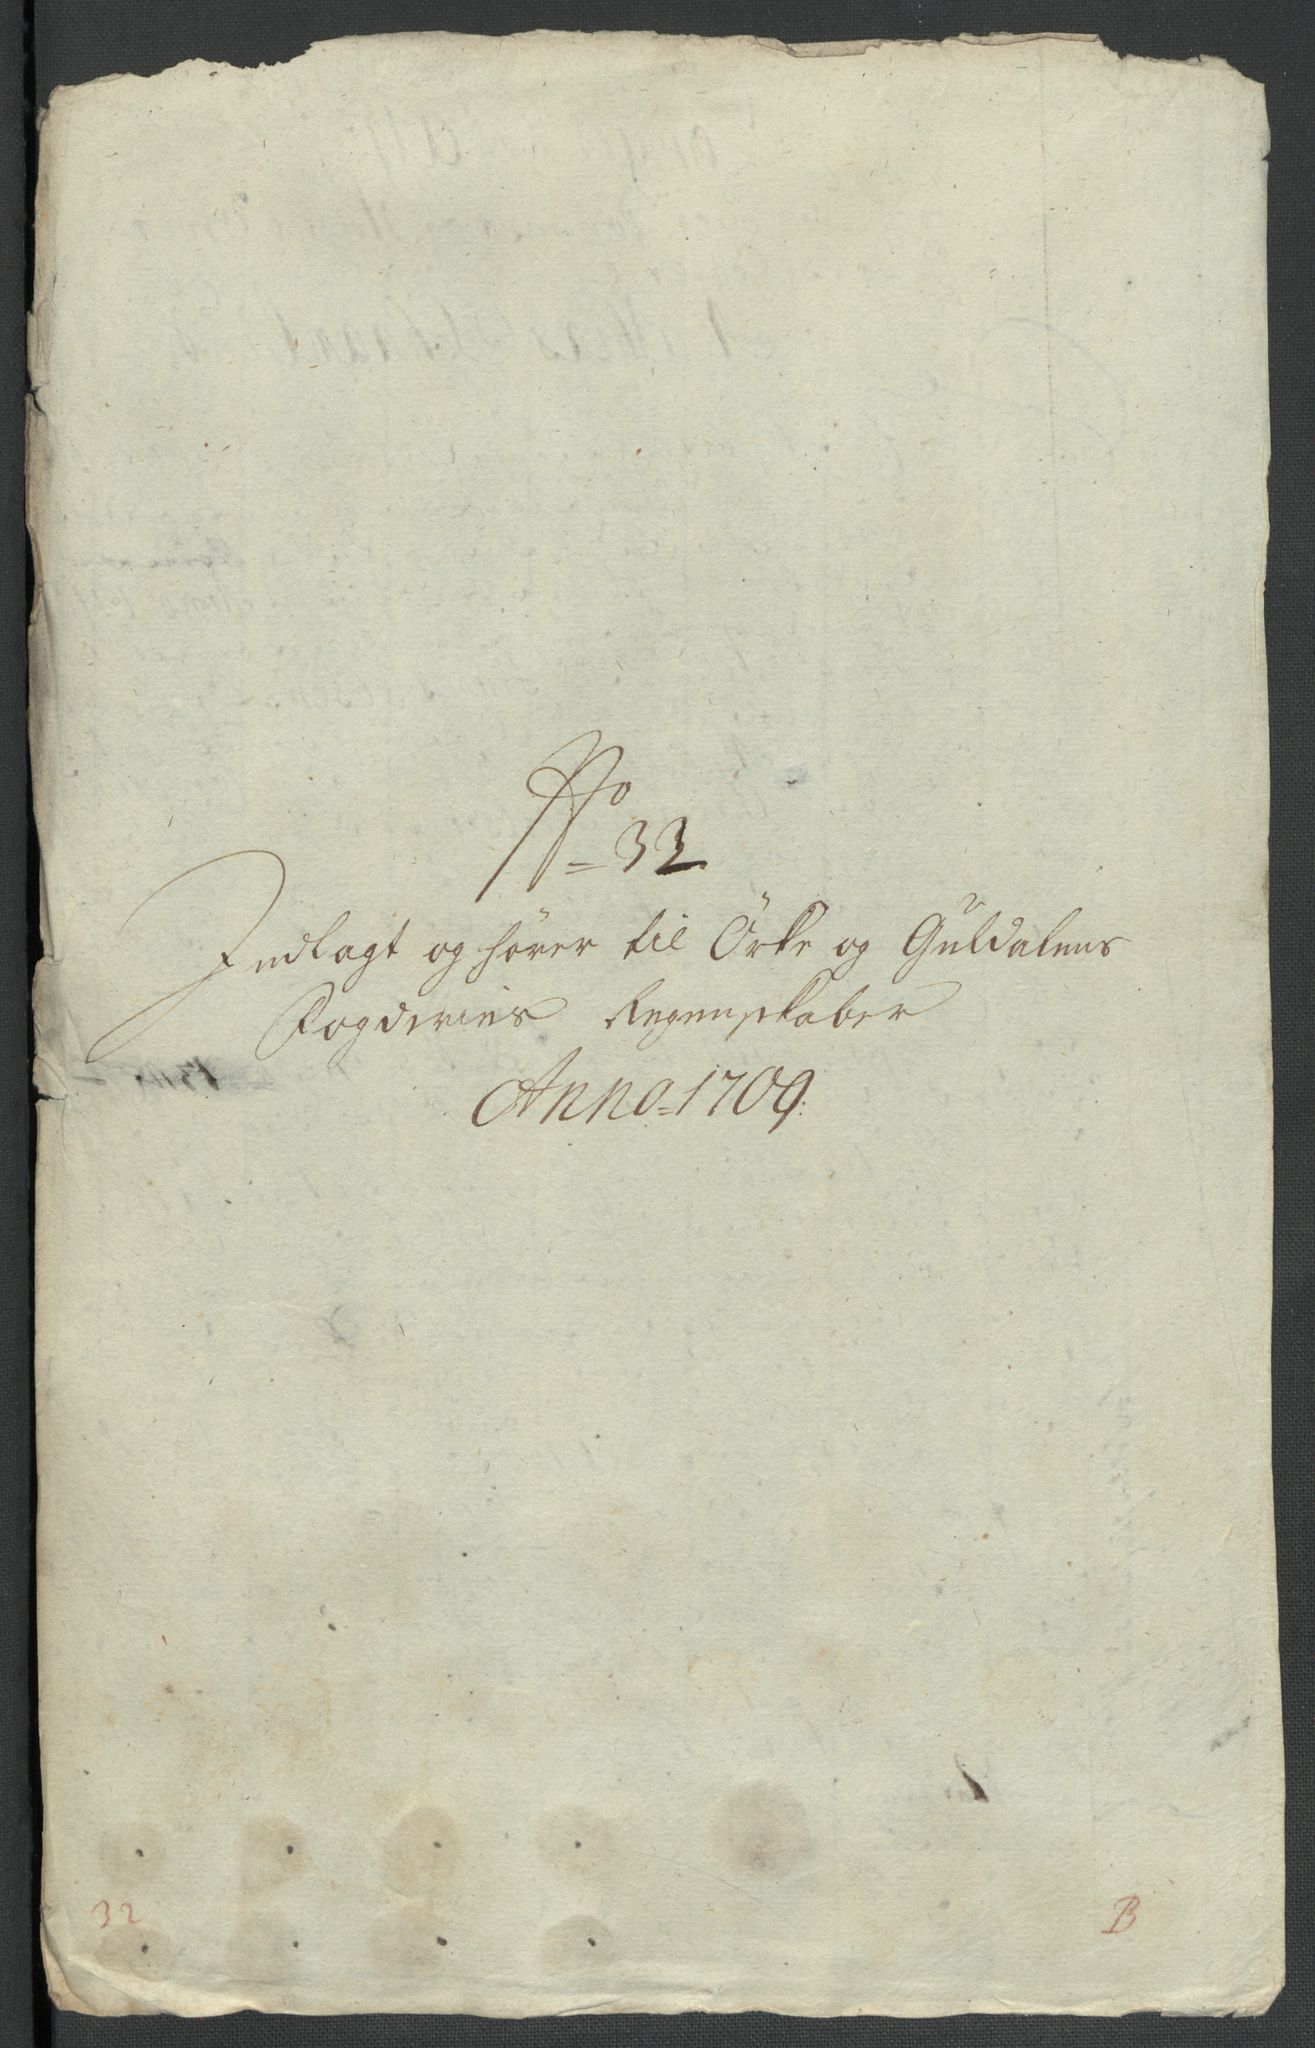 No
= 32
Indlagt og hører til Örke og Guldalens
Fogderies Regenskaber
Anno = 1709:
32
B